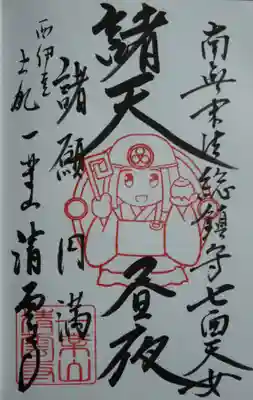 南無末法総鎮守七面天女
諸天昼夜
諸願円満
西伊豆
土肥
一妙山清雲寺